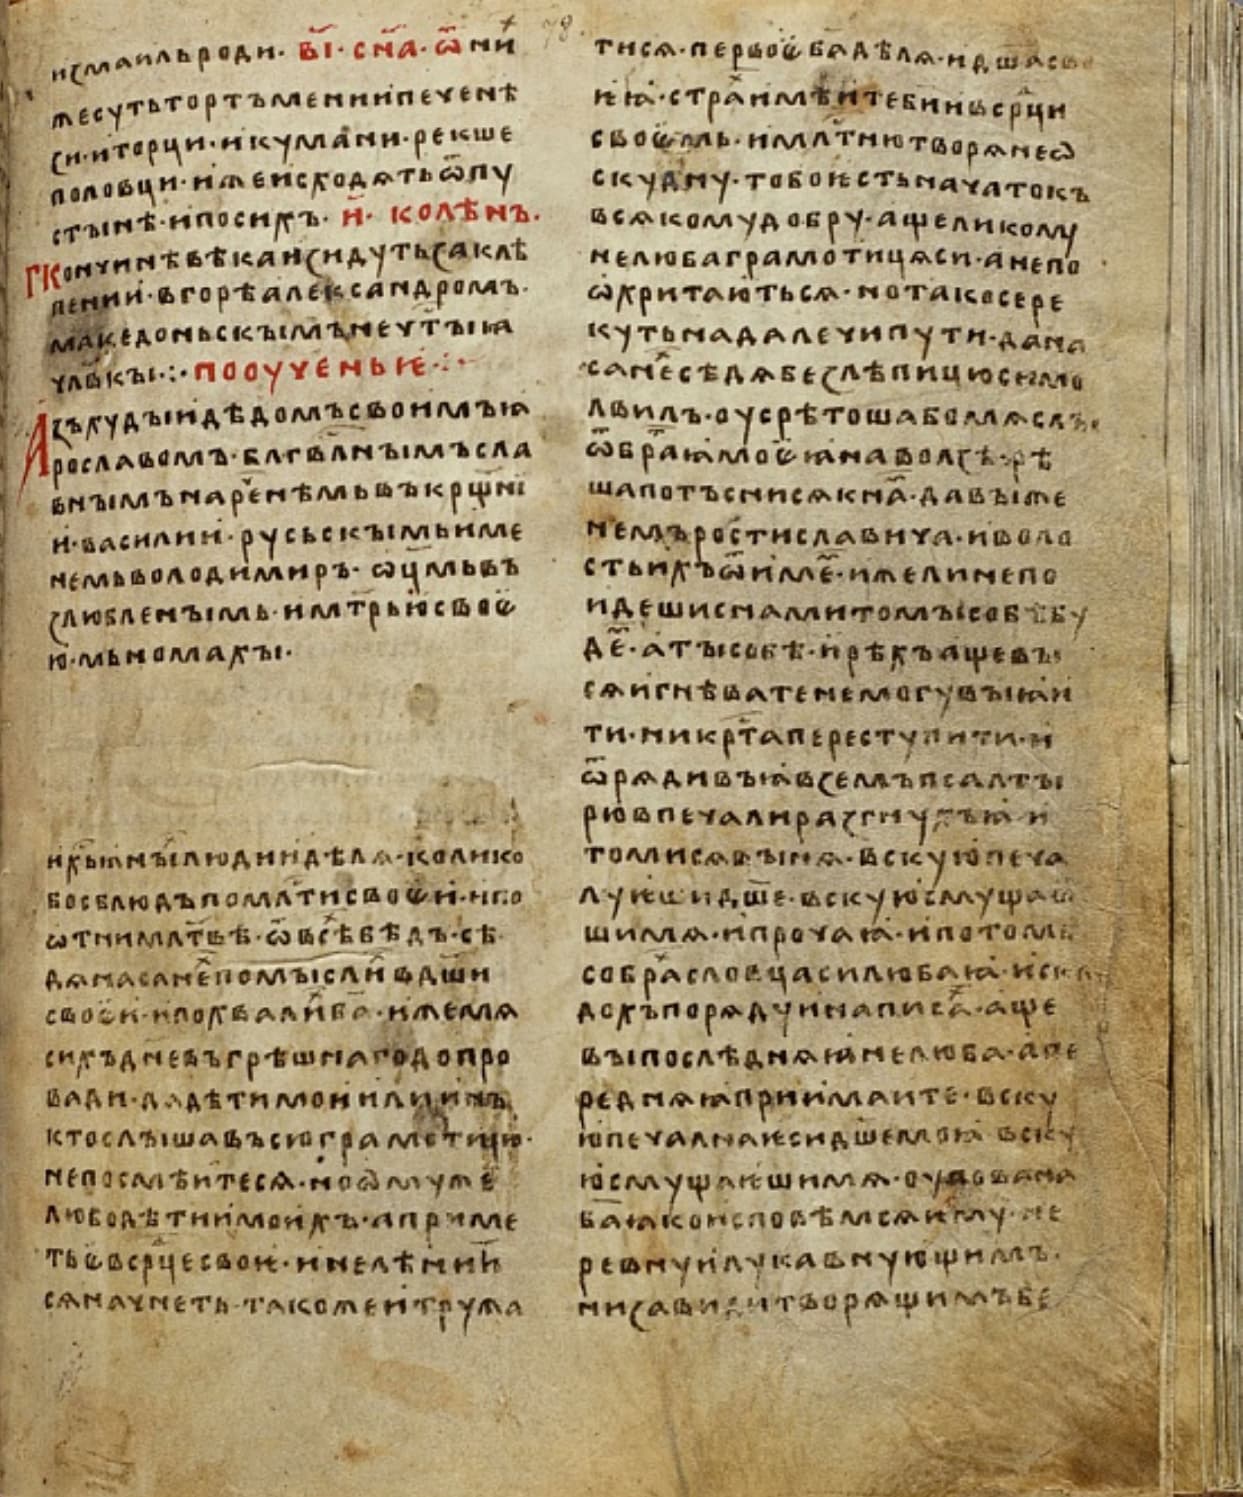 78
исмаильроди· в҃і· сн҃а· ѿни
жесутьтортъменииипеченѣ
зи·иторци·икумани·рекше
половци·ижеисходѧтьѿпу
стынѣ·ипосихъ· и҃· колѣнъ·
кончинѣвѣкаизидутьзаклѣ
пении·вгорѣалександромъ·
македоньскымънечⷭ҇тыꙗ
члв҃кы ⁘ поѹченьѥ ⁘
Азъхудыидѣдомъсвоимъꙗ
рославомъ·блгⷭ҇влнымъсла
внымънарⷱ҇енѣмьвъкрщ҃ні
и·василии·русьскымьиме
немьволодимиръ·ѿц҃мьвъ
злюбленымь·имтр҃ьюсвоѥ
ю·мьномахы·
ихрⷭ҇ьꙗныхълюдиидѣлѧ·колико
босблюдъпомлⷭ҇тисвоѥи·ипо
ѡтнимлт҃вѣ·ѿвсѣхъбѣдъ·сѣ
дѧнасанехъпомыслихъвдш҃и
своѥи·ипохвалихъба҃·ижемѧ
сихъдневъгрѣшнагодопро
вади·дадѣтимоиилиинъ
ктослышавъсюграмотицю·
непосмѣитесѧ·ноѡмуже
любодѣтиимоихъ·априме
тьѥвсрⷣ҇цесвоѥ·инелѣнитⷭ҇и
сѧначнеть·такожеитружа
тисѧ·первоѥба҃дѣлѧ·идш҃асво
ѥꙗ·страⷯ҇имѣитеби҃ивсрⷣ҇ци
своѥмь·имлⷭ҇тнютворѧнеѡ
скудну·тобоѥстьначатокъ
всѧкомудобру·ащеликому
нелюбаграмотицѧси·анепо
ѡхритаютьсѧ·нотакосере
куть·надалечипути·дана
санехъсѣдѧбезлѣпицюсимо
лвилъ·ѹсрѣтошабомѧслы
ѿбраⷮ҇ꙗмоѥꙗнаволзѣ·рѣ
шапотъснисѧкна҃·давыже
немъростиславича·иволо
стьихъѿимемъ·ижелинепо
идешиснамитомысобѣбу
демъ·атысобѣ·ирѣхъащевы
сѧигнѣвате·немогувыꙗи
ти·никрⷭ҇тапереступити·и
ѿрѧдивъꙗвземъпсалты
рювпечалиразгнухъꙗ·и
томисѧвынѧ·вскуюпеча
луѥшидш҃е·вскуюсмущаѥ
шимѧ·ипрочаꙗ·ипотомь
собраⷯ҇словцасилюбаꙗ·искла
дохъпорѧдуинаписаⷯ҇·аще
выпослѣднѧꙗнелюба·апе
реднѧꙗприимаите·вску
юпечалнаѥсидш҃емоꙗ вску
юсмущаѥшимѧ·ѹповаина
ба҃ꙗкоисповѣмсѧѥму·не
ревнуилукавнующимъ·
низавидитворѧщимъбе